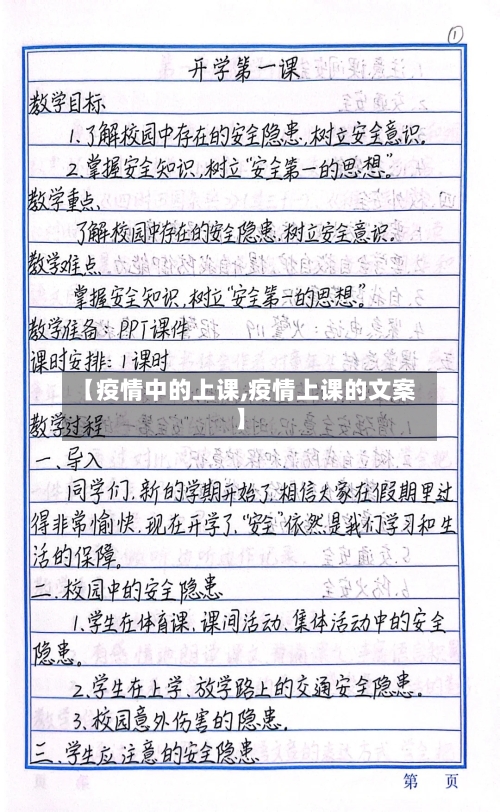 ①
开学第一课
教学目标
1.了解校园中存在的安全隐患,树立安全意识。
2.掌握安全知识,树立“安全第一的思想”。
教学重点
了解校园中存在的安全隐患,树立安全意识。
教学难点
掌握安全知识,树立“安全第一的思想”。
教学准备:PPT课件
课时安排:1课时
【疫情中的上课,疫情上课的文案
】
教学过程
一、导入
同学们,新的学期开始了,相信大家在假期里过
得非常愉快,现在开学了,“安全”依然是我们学习和生
活的保障。
二、校园中的安全隐患
1.学生在体育课、课间活动、集体活动中的安全
隐患。
2.学生在上学、放学路上的交通安全隐患。
3.校园意外伤害的隐患。
三、学生应注意的安全隐患
第 页